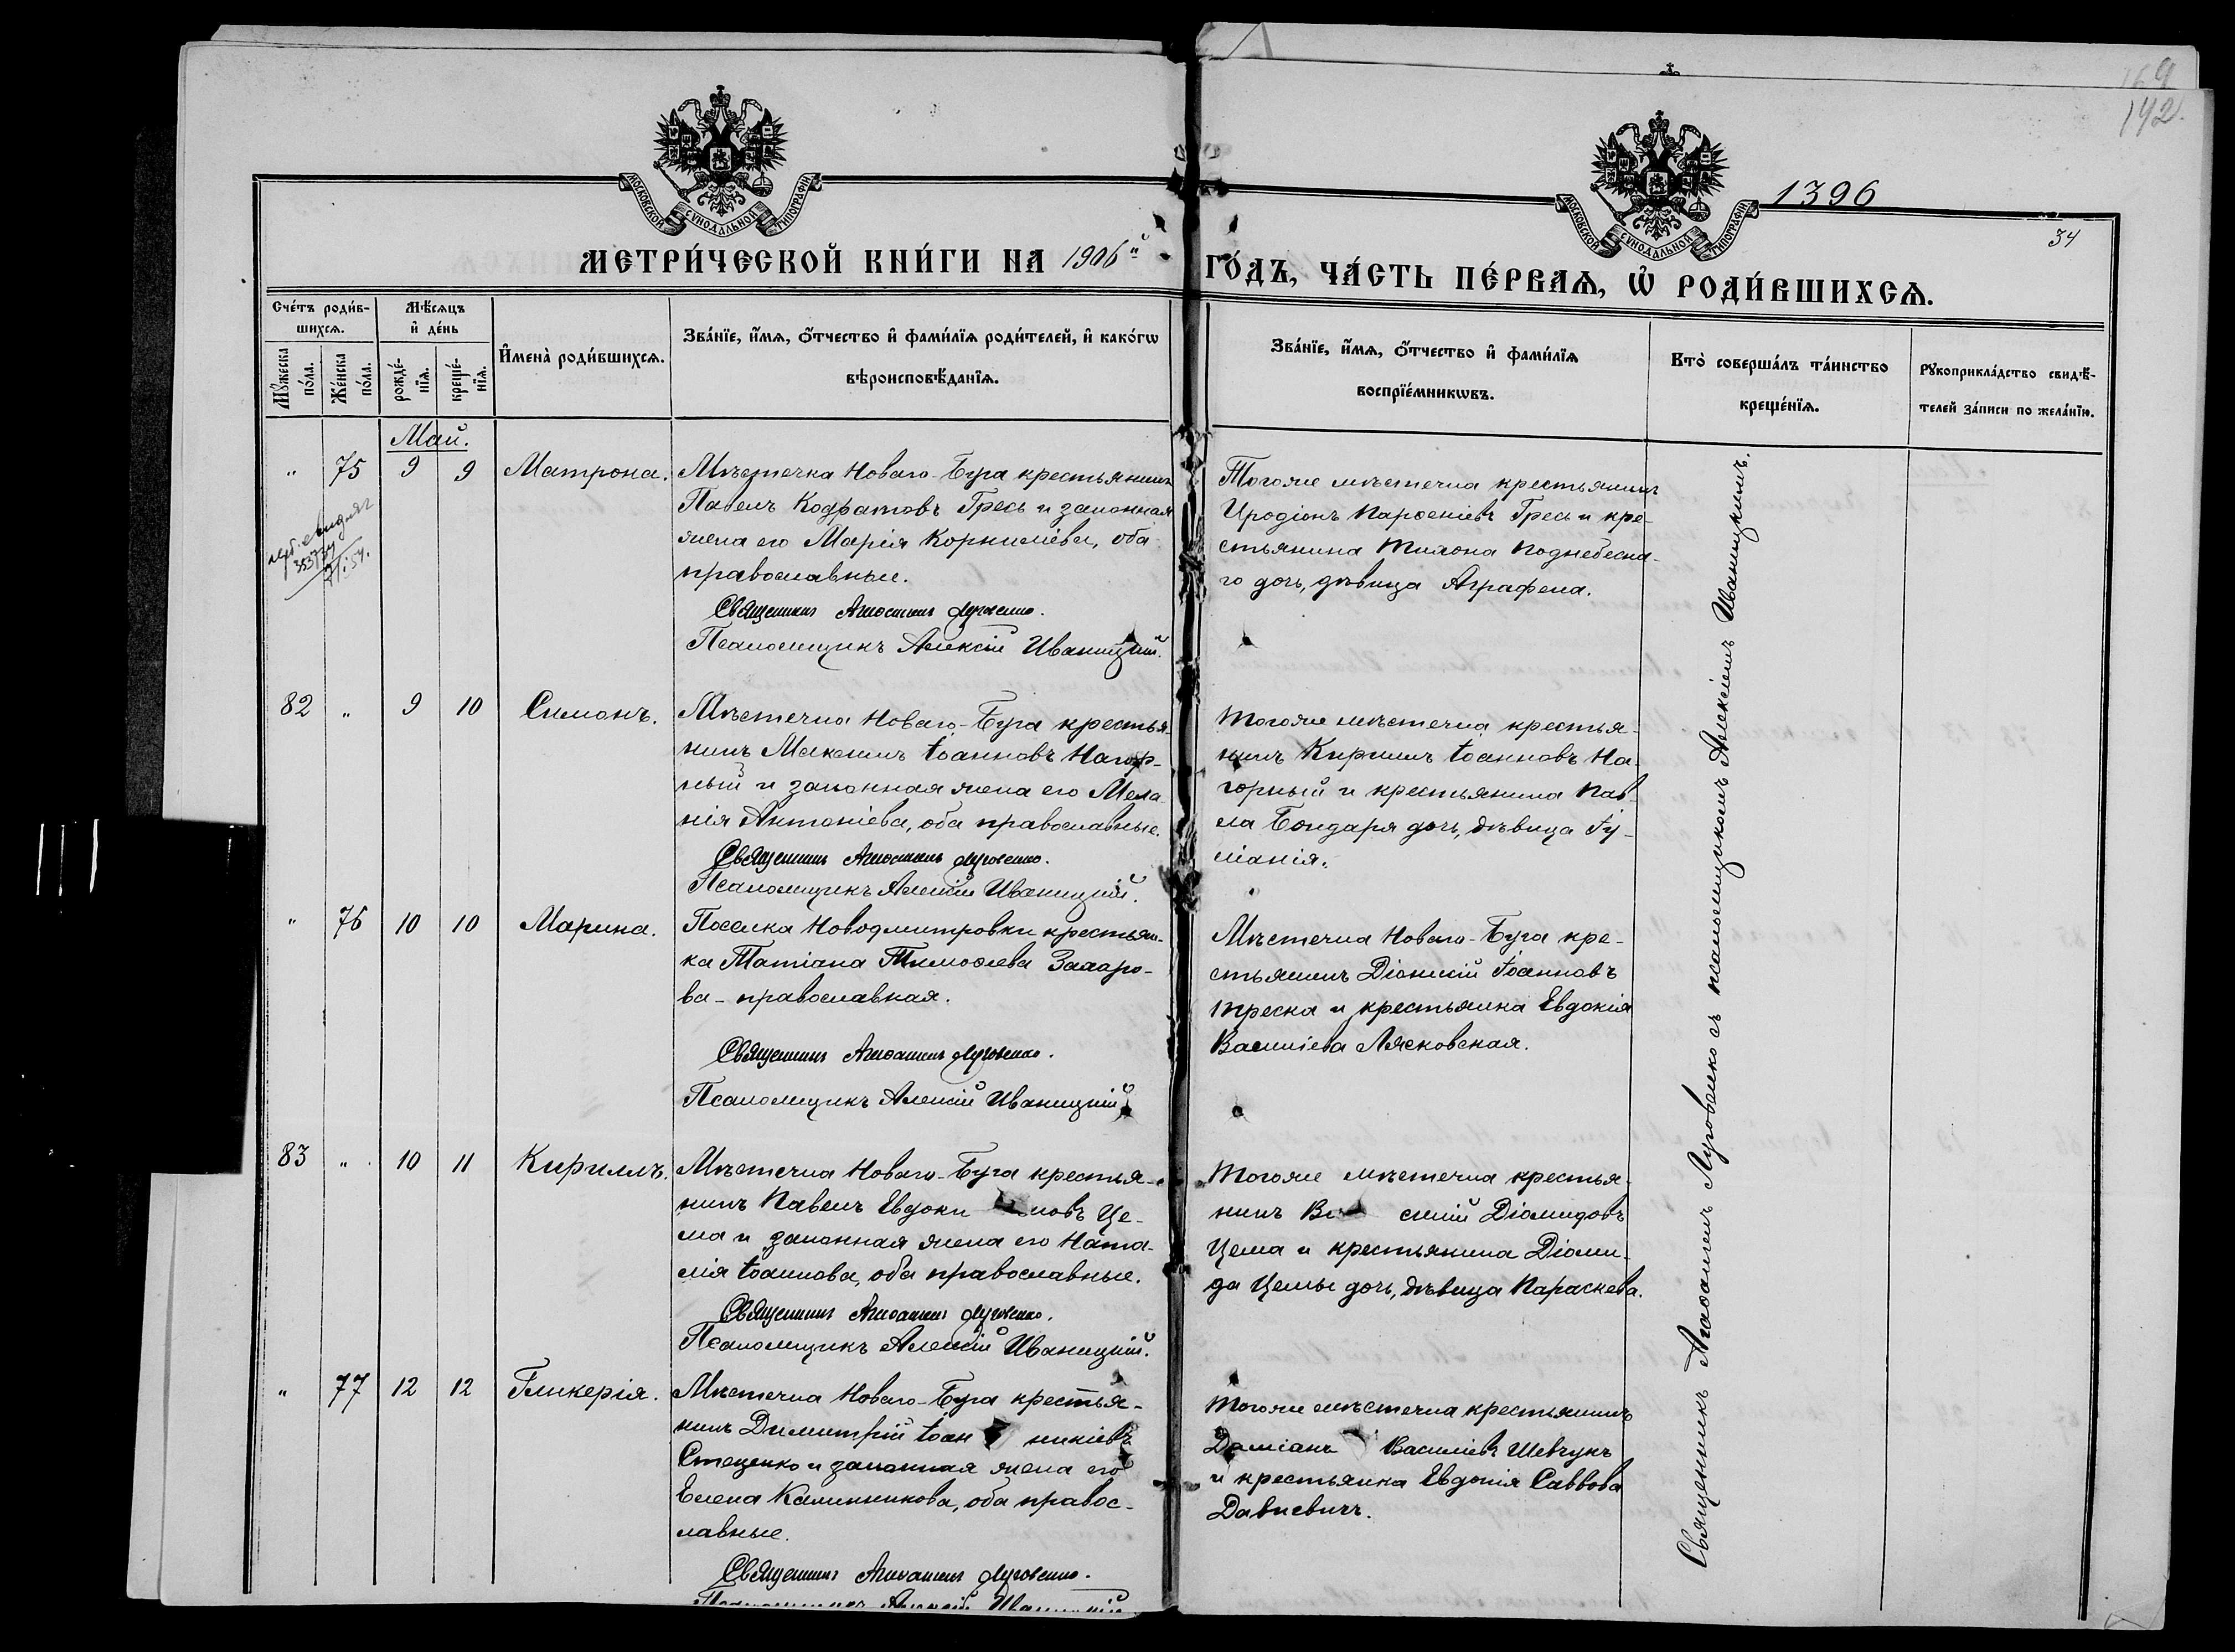 169
142.
1396
34
МОСКОВСКОЙ СѴНОДАЛЬНОЙ ТИПОГРАФІИ
МОСКОВСКОЙ СѴНОДАЛЬНОЙ ТИПОГРАФІИ
МЕТРИ́ЧЕСКОЙ КНИ́ГИ НА 1906й
ГО́ДЪ, ЧА́СТЬ ПЕ́РВАѦ, Ѡ҆ РОДИ́ВШИХСѦ.
Сче́тъ роди́в-
шихсѧ.
Мꙋ́жеска по́ла.
Же́нска по́ла.
Мѣ́сѧцъ
и҆ де́нь
рожде́-
нїѧ.
креще́-
нїѧ.
И҆мена̀ роди́вшихсѧ.
Зва́нїе, и҆́мѧ, ѻ҆́тчество и҆ фами́лїѧ роди́телей, и҆ како́гѡ
вѣроисповѣ́данїѧ.
Зва́нїе, и҆́мѧ, ѻ҆́тчество и҆ фами́лїѧ
воспрїе́мникѡвъ.
Кто̀ соверша́лъ та́инство
креще́нїѧ.
Рꙋкоприкла́дство свидѣ́-
телей за́писи по жела́нїю.
Май.
" 75 9 9 Матрона.
Мѣстечка Новаго-Буга крестьянинъ
Павелъ Кодратовъ Гресь и законная
жена его Марія Корниліева, оба
православные.
Священникъ Агаѳангелъ Луговенко.
Псаломщикъ Алексій Иваницкій.
Тогоже мѣстечка крестьянинъ
Иродіонъ Парѳеніевъ Гресь и кре-
стьянина Тихона Поднебесна-
го дочь, дѣвица Аграфена.
82 " 9 10 Симонъ.
Мѣстечка Новаго-Буга крестья-
нинъ Максимъ Іоанновъ Нагор-
ный и законная жена его Мела-
нія Антоніева, оба православные.
Священникъ Агаѳангелъ Луговенко.
Псаломщикъ Алексій Иваницкій.
Тогоже мѣстечка крестья-
нинъ Кириллъ Іоанновъ На-
горный и крестьянина Пав-
ла Бондаря дочь, дѣвица Іу-
ліанія.
" 76 10 10 Марина.
Поселка Новодмитровки крестьян-
ка Татіана Тимоѳеева Захаро-
ва - православная.
Священникъ Агаѳангелъ Луговенко.
Псаломщикъ Алексій Иваницкій
Мѣстечка Новаго-Буга кре-
стьянинъ Діонисій Іоанновъ
Треска и крестьянка Евдокія
Василіева Лясковская.
83 " 10 11 Кириллъ.
Мѣстечка Новаго-Буга крестья-
нинъ Павелъ Евдоки мовъ Це-
ма и законная жена его Ната-
лія Іоаннова, оба православные.
Священникъ Агаѳангелъ Луговенко.
Псаломщикъ Алексій Иваницкій.
Тогоже мѣстечка крестья-
нинъ Ва силій Діомидовъ
Цема и крестьянина Діоми-
да Цемы дочь, дѣвица Параскева.
" 77 12 12 Гликерія.
Мѣстечка Новаго-Буга крестья-
нинъ Димитрій Іоан никіевъ
Стеценко и законная жена его
Елена Калинникова, оба правос-
лавные.
Священникъ Агаѳангелъ Луговенко.
Псаломщикъ Алексій Иваницкій
Тогоже мѣстечка крестьянинъ
Даміанъ Василіевъ Шевчукъ
и крестьянка Евдокія Саввова
Давиевичъ.
Священникъ Агаѳангелъ Луговенко съ псаломщикомъ Алексіемъ Иваницкимъ.